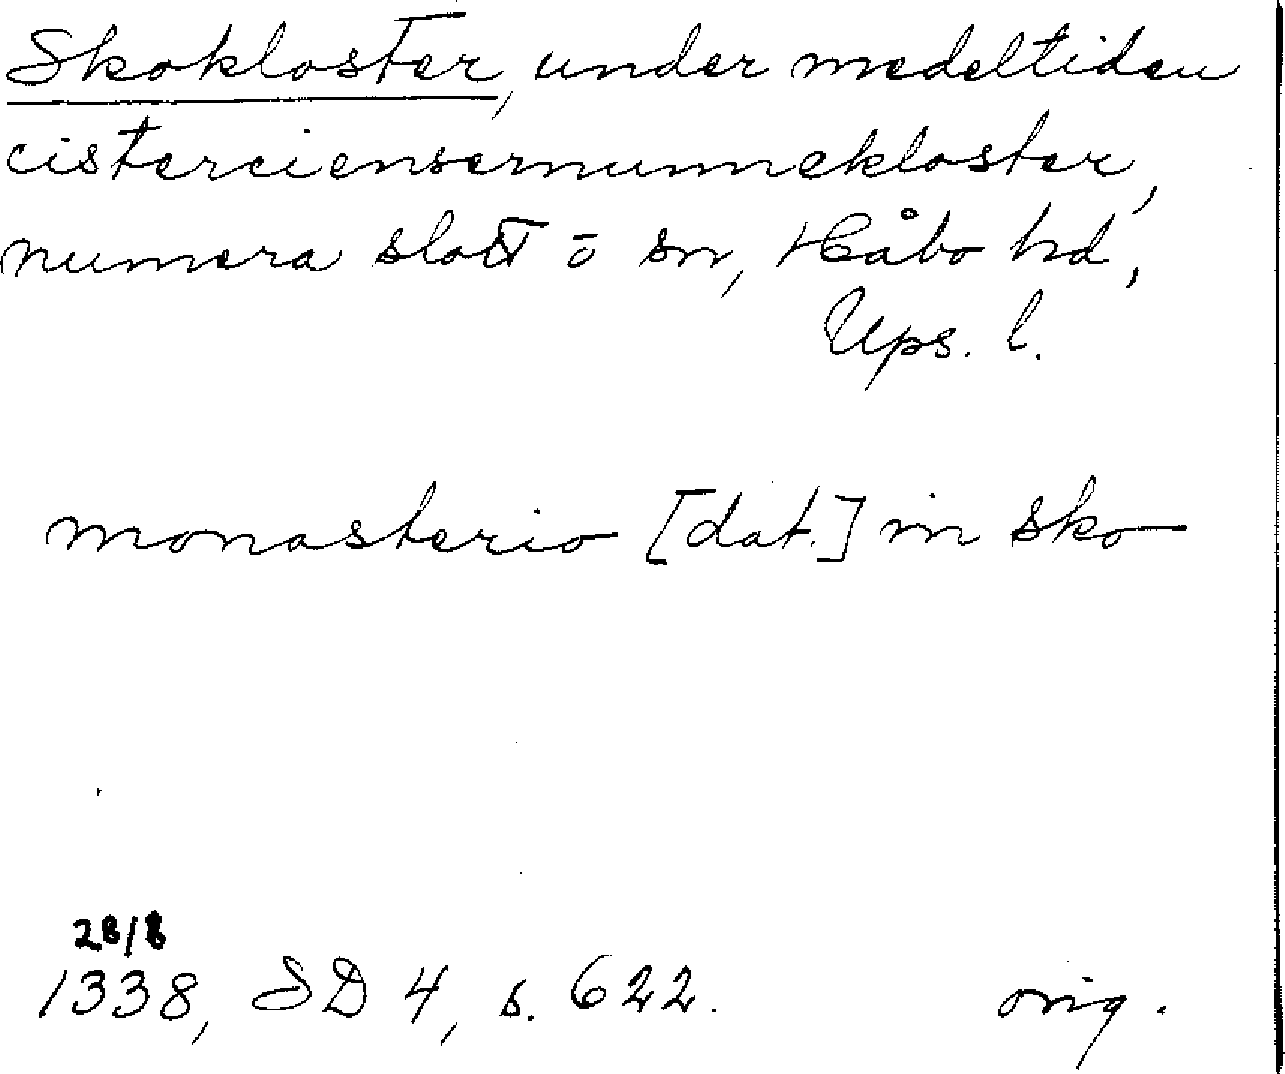 Skokloster, under medeltiden
cisterciensernunnekloster,
numera slott o sn, Håbo hd,
Ups. l.
monasterio [dat.] in sko
28/8
1338, SD 4, s. 622. orig.